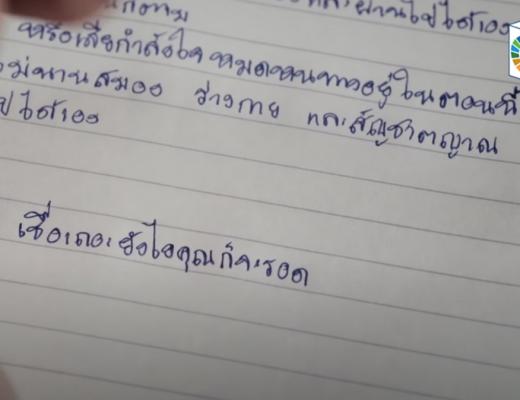 ผ่านไปได้เอง
หรือเสียกำลังใจ หมดหนทางอยู่ ในตอนนี้
ไม่นานสมอง ร่างกาย และสัญชาตญาณ
ไปได้เอง
เชื่อเถอะยังไงคุณก็จะรอด